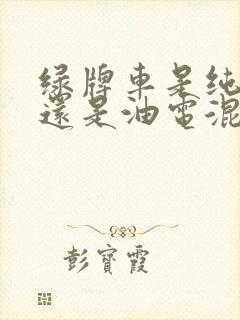 绿牌車是纯
還是油電混
彭寶霞